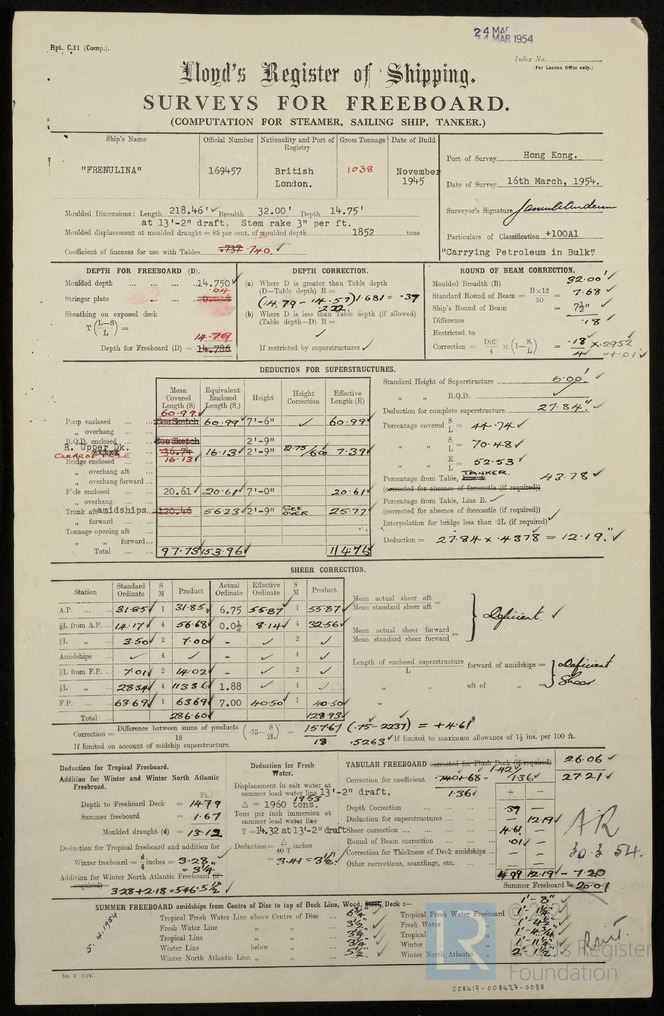 Rpt. C.11 (Comp.).
24 MAR 1954
Index No.
(For London Office only.)
Lloyd's Register of Shipping.
SURVEYS FOR FREEBOARD.
(COMPUTATION FOR STEAMER, SAILING SHIP, TANKER.)
Ship's Name Official Number Nationality and Port of Registry Gross Tonnage Date of Build
"FRENULINA" 169457 British London. 1038 November 1945
Port of Survey Hong Kong.
Date of Survey 16th March, 1954.
Surveyor's Signature
Particulars of Classification +100A1
"Carrying Petroleum in Bulk"
Moulded Dimensions: Length 218.46' Breadth 32.00' Depth 14.75'
at 13'-2" draft. Stem rake 3" per ft.
Moulded displacement at moulded draught = 85 per cent. of moulded depth 1852 tons
Coefficient of fineness for use with Tables .737 .740
DEPTH FOR FREEBOARD (D).
Moulded depth 14.750
Stringer plate .04
Sheathing on exposed deck
T(L-S/L) =
Depth for Freeboard (D) = 14.79 14.786
DEPTH CORRECTION.
(a) Where D is greater than Table depth
(D-Table depth) R =
(14.79 - 14.57) 1.681 = .37
(b) Where D is less than Table depth (if allowed)
(Table depth-D) R =
If restricted by superstructures
ROUND OF BEAM CORRECTION.
Moulded Breadth (B) 32.00'
Standard Round of Beam = B×12/50 = 7.68
Ship's Round of Beam = 7½"
Difference .18
Restricted to
Correction = Diff/4 × (1-S/L) = .18/4 × .2952 = +.01
DEDUCTION FOR SUPERSTRUCTURES.
Mean Covered Length (S) Equivalent Enclosed Length (S.) Height Height Correction Effective Length (E)
Poop enclosed 60.99 See Sketch 60.99 7'-6" 60.99
" overhang
R.Q.D. enclosed See Sketch 2'-9"
R. Upper Dk. 36.74 16.13 16.13 2'-9" 2.75/6.00 7.39
Bridge enclosed
" overhang aft
" overhang forward
F'cle enclosed 20.61 20.61 7'-0" 20.61
" overhang
Trunk aft amidships 120.46 56.23 2'-9" SEE OVER 25.77
" forward
Tonnage opening aft
" " forward
Total 97.73 153.96 114.76
Standard Height of Superstructure 6.00'
" " R.Q.D.
Deduction for complete superstructure 27.84"
Percentage covered S/L = 44.74
" " S/L = 70.48
" " E/L = 52.53
Percentage from Table, TANKER 43.78
(corrected for absence of forecastle (if required))
Percentage from Table, Line B.
(corrected for absence of forecastle (if required))
Interpolation for bridge less than ·2L (if required)
Deduction = 27.84 × .4378 = 12.19"
SHEER CORRECTION.
Station Standard Ordinate S M Product Actual Ordinate Effective Ordinate S M Product
A.P. 31.85 1 31.85 6.75 55.87 1 55.87
⅙L from A.P. 14.17 4 56.68 0.0½ 8.14 4 32.56
⅓L " 3.50 2 7.00 - 2
Amidships 4 - 4
⅓L from F.P. 7.01 2 14.02 - 2
⅙L " 28.34 4 113.36 1.88 4
F.P. 63.69 1 63.69 7.00 40.50 1 40.50
Total 286.60 128.93
Mean actual sheer aft
Mean standard sheer aft = Deficient.
Mean actual sheer forward
Mean standard sheer forward =
Length of enclosed superstructure/L forward of amidships = Deficient Sheer
" " aft of " =
Correction = Difference between sums of products/18 (·75-S/2L) = 157.67/18 (.75-.2237) = +4.61
.5263
If limited on account of midship superstructure. If limited to maximum allowance of 1½ ins. per 100 ft.
Deduction for Tropical Freeboard.
Addition for Winter and Winter North Atlantic Freeboard.
Ft.
Depth to Freeboard Deck = 14.79
Summer freeboard = 1.67
Moulded draught (d) = 13.12
Deduction for Tropical freeboard and addition for
Winter freeboard = d/4 inches = 3.28" = 3¼
Addition for Winter North Atlantic Freeboard (if required)
3.28+2.18=5.46=5½"
Deduction for Fresh Water.
Displacement in salt water at summer load water line 13'-2" draft.
Δ = 1960 tons 1953
Tons per inch immersion at summer load water line
T = 14.32 at 13'-2" draft
Deduction = Δ/40 T inches
= 3.41 = 3½"
TABULAR FREEBOARD corrected for Flush Deck (if required) 26.06
Correction for coefficient 1.42/1.36 27.21
1.36
+ -
Depth Correction .39 -
Deduction for superstructures - 12.19
Sheer correction 4.61 -
Round of Beam correction .01 -
Correction for Thickness of Deck amidships - -
Other corrections, scantlings, etc. - -
4.99 12.19 - 7.20
Summer Freeboard = 20.01
AR
30.3.54.
SUMMER FREEBOARD amidships from Centre of Disc to top of Deck Line, Wood, Steel, Deck :— 1'- 8"
Tropical Fresh Water Line above Centre of Disc 6¾" Tropical Fresh Water Freeboard 1'- 1¼"
Fresh Water Line " " 3½" Fresh Water " 1'- 4½"
Tropical Line " " 3¼" Tropical " 1'- 4¾"
Winter Line below " 3¼" Winter " 1'- 11¼"
Winter North Atlantic Line " " 5½" Winter North Atlantic " 2'- 1½"
5.4.1954
LR
© 2021
Lloyd's Register
Foundation
008417-008427-0088